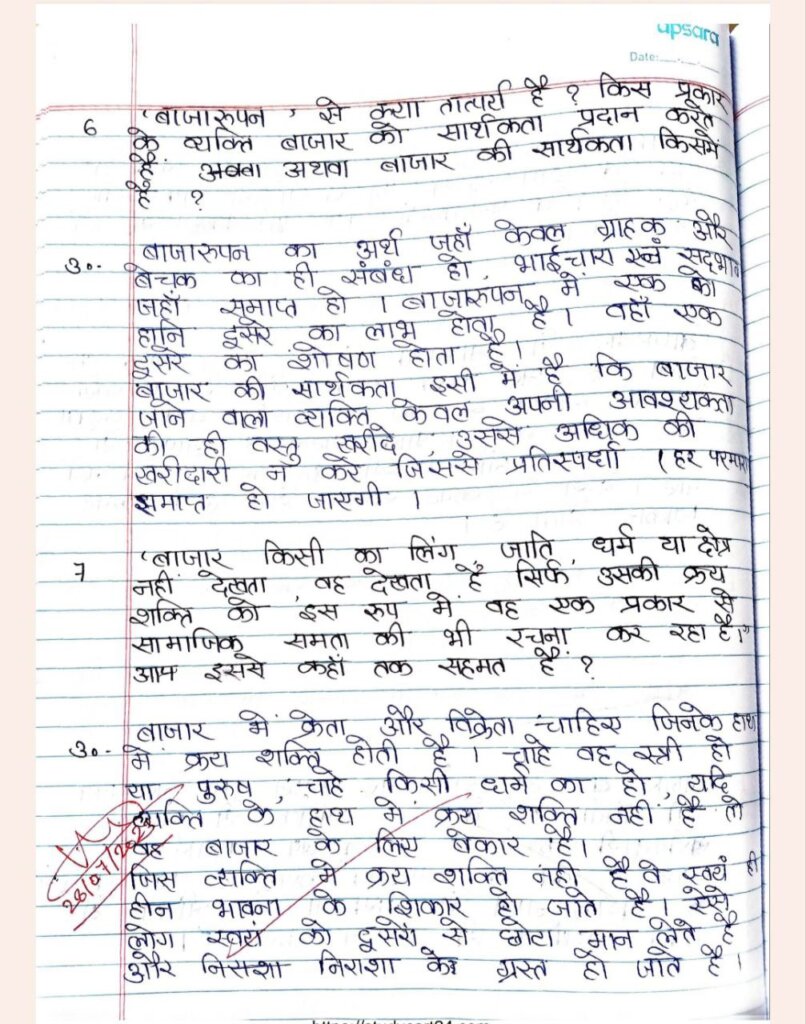 apsara
Date:
6 'बाजारुपन' से क्या तात्पर्य है ? किस प्रकार
के व्यक्ति बाजार को सार्थकता प्रदान करते
हैं अथवा बाजार की सार्थकता किसमें
है ?
उ०- बाजारुपन का अर्थ जहाँ केवल ग्राहक और
बेचक का ही संबंध हो, भाईचारा एवं सद्भाव
जहाँ समाप्त हो । बाजारुपन में एक को
हानि दूसरे का लाभ होता है । वहाँ एक
दूसरे का शोषण होता है ।
बाजार की सार्थकता इसी में है कि बाजार
जाने वाला व्यक्ति केवल अपनी आवश्यकता
की ही वस्तु खरीदे, उससे अधिक की
खरीदारी न करे जिससे प्रतिस्पर्धा (हर
समाप्त हो जाएगी ।
7 'बाजार किसी का लिंग, जाति, धर्म या क्षेत्र
नहीं देखता, वह देखता है सिर्फ उसकी क्रय
शक्ति को इस रुप में वह एक प्रकार से
सामाजिक समता की भी रचना कर रहा है।"
आप इससे कहाँ तक सहमत हैं ?
उ०- बाजार में क्रेता और विक्रेता चाहिए जिनके हाथ
में क्रय शक्ति होती है । चाहे वह स्त्री हो
या पुरुष, चाहे किसी धर्म का हो, यदि
व्यक्ति के हाथ में क्रय शक्ति नहीं है तो
वह बाजार के लिए बेकार है ।
जिस व्यक्ति में क्रय शक्ति नहीं है वे स्वयं ही
हीन भावना के शिकार हो जाते है । ऐसे
लोग स्वयं को दूसरों से छोटा मान लेते है
और निराशा के ग्रस्त हो जाते है ।